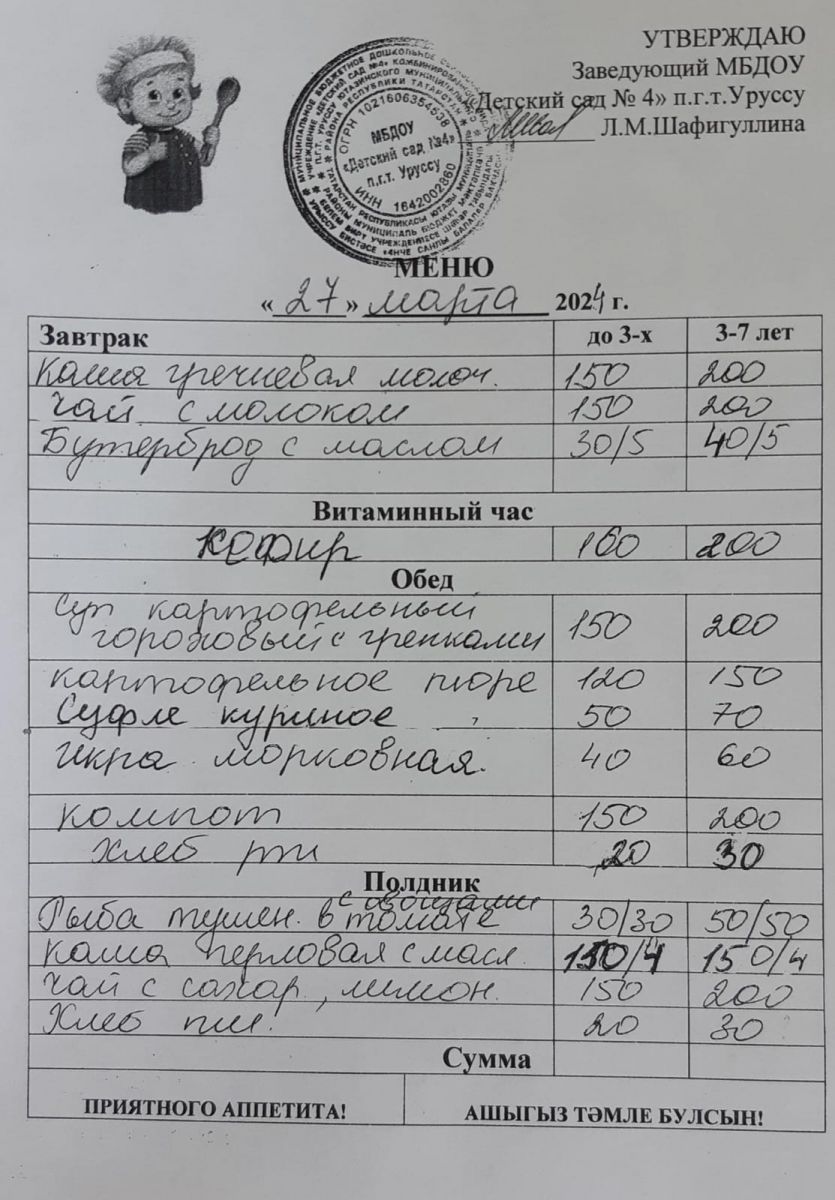 УТВЕРЖДАЮ
Заведующий МБДОУ
«Детский сад № 4» п.г.т.Уруссу
Л.М.Шафигуллина
ОГРН 1021606354538
МБДОУ
«Детский сад №4»
п.г.т. Уруссу
ИНН 1642002860
МЕНЮ
«27» марта 2024 г.
Завтрак до 3-х 3-7 лет
Каша гречневая молоч. 150 200
Чай с молоком 150 200
Бутерброд с маслом 30/5 40/5
Витаминный час
кефир 160 200
Обед
Суп картофельный
гороховый с гренками 150 200
картофельное пюре 120 150
Суфле куриное 50 70
Икра морковная. 40 60
компот 150 200
Хлеб рж 20 30
Полдник
с овощами
Рыба тушен. в томате 30/30 50/50
Каша перловая с масл 150/4 150/4
Чай с сахар, лимон. 150 200
Хлеб пш. 20 30
Сумма
ПРИЯТНОГО АППЕТИТА! АШЫГЫЗ ТӘМЛЕ БУЛСЫН!